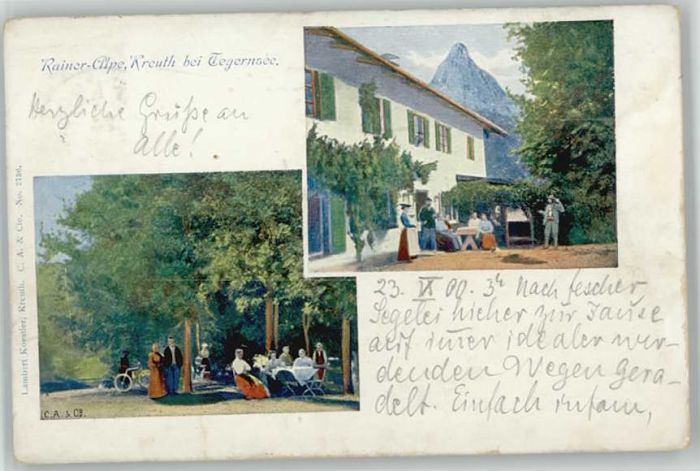 Rainer-Alpe, Kreuth bei Tegernsee.
Herzliche Grüße an
alle!
Lambert Koestler, Kreuth. C. A. & Cie. No. 2736.
23. VI 00. 3h Nach fescher
Segelei hieher zur Jause
auf immer idealer wer-
denden Wegen gera-
delt. Einfach infam,
C.A. & Co.